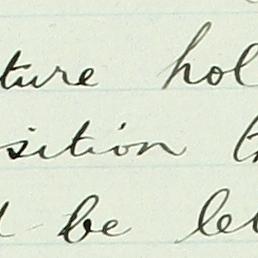 ture hol
sition
be let